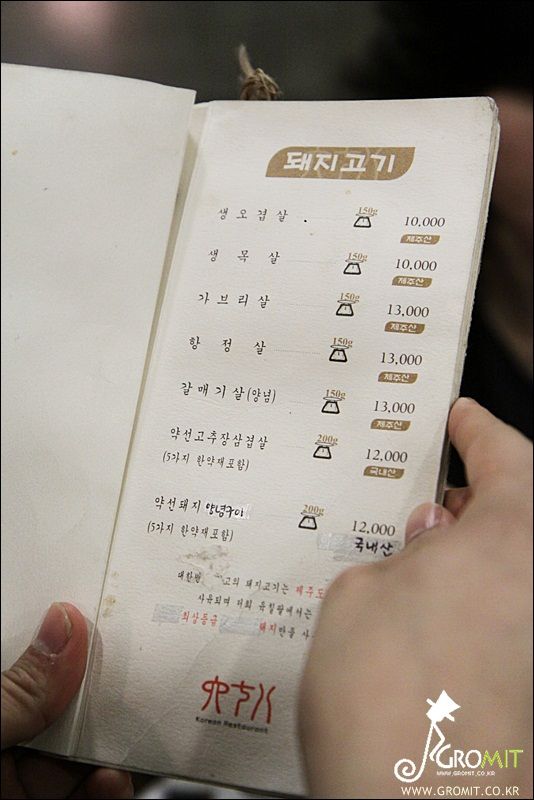 돼지고기
생오겹살 150g 10,000
제주산
생목살 150g 10,000
제주산
가브리살 150g 13,000
제주산
항정살 150g 13,000
제주산
갈매기살(양념) 150g 13,000
제주산
약선고추장삼겹살 200g 12,000
(5가지 한약재포함) 국내산
약선돼지 양념구이 200g 12,000
(5가지 한약재포함) 국내산
대한민 고의 돼지고기는 제주도
사용되며 저희 육칠팔에서는
최상등급 돼지만을 사
육칠팔
Korean Restaurant
GROMIT
WWW.GROMIT.CO.KR
WWW.GROMIT.CO.KR